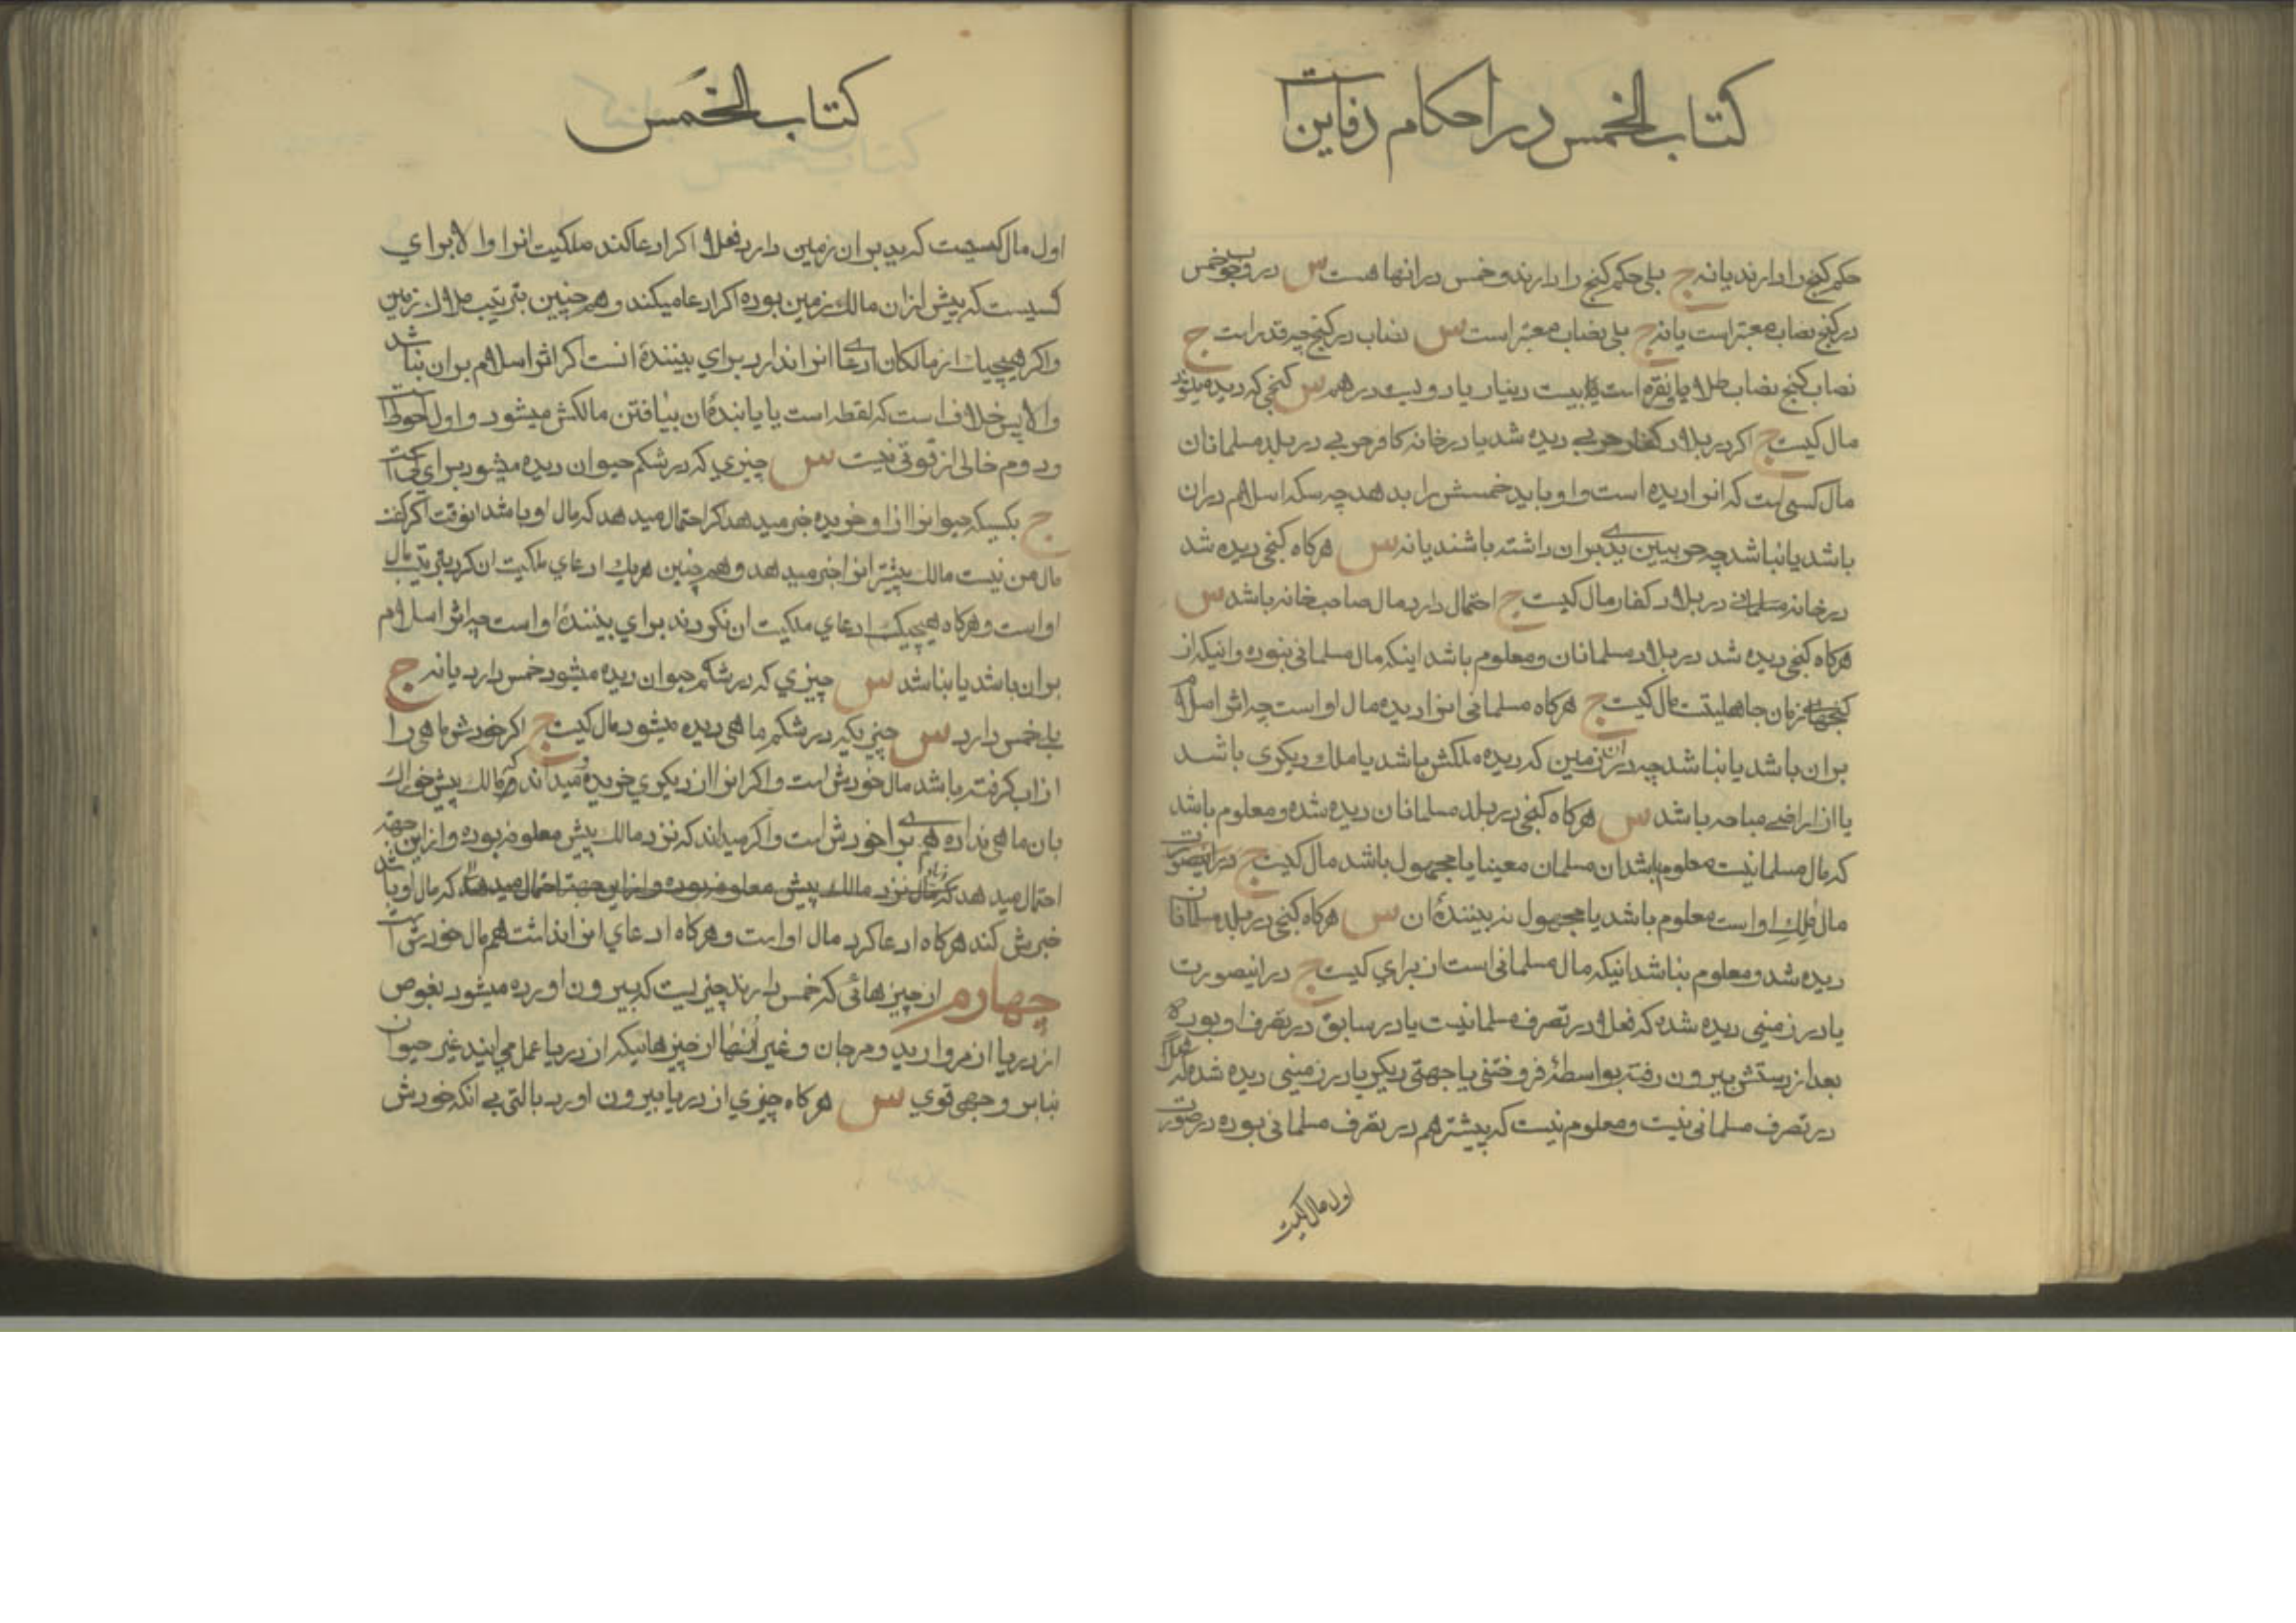 کتاب الخمس در احکام دفاین است
حکم کنج را دارند یا نه ج بلی حکم کنج را دارند و خمس در انها هست س در وجوب خمس
در کنج نصاب معتبر است یا نه ج بلی نصاب معتبر است س نصاب در کنج چه قدر است ج
نصاب کنج نصاب طلا یا نقره است بیست دینار یا دویست درهم س کنجی که دیده میشود
مال کیست ج اکر در بلاد کفار حربی دیده شد یا در خانه کافر حربی در بلد مسلمانان
مال کسی است که انرا دیده است و او باید خمسش را بدهد چه سکه اسلام در ان
باشد یا نباشد چه حربیین یدی بر ان داشته باشند یا نه س هرکاه کنجی دیده شد
در خانه مسلمانی در بلاد کفار مال کیست ج احتمال دارد مال صاحب خانه باشد س
هرکاه کنجی دیده شد در بلاد مسلمانان و معلوم باشد اینکه مال مسلمانی نبوده و اینکه از
کنجهای زمان جاهلیتست مال کیست ج هرکاه مسلمانی انرا دیده مال او است چه اثر اسلام
بر ان باشد یا نباشد چه در ان زمین که دیده ملکش باشد یا ملک دیکری باشد
یا از اراضی مباحه باشد س هرکاه کنجی در بلد مسلمانان دیده شده و معلوم باشد
که مال مسلمانیست معلوم باشد ان مسلمان معینا یا مجهول باشد مال کیست ج در اینصورت
مال مالک او است معلوم باشد یا مجهول نه بینندهٔ ان س هرکاه کنجی در بلد مسلمانان
دیده شد و معلوم نباشد اینکه مال مسلمانی است از برای کیست ج در اینصورت
یا در زمینی دیده شده که فعلا در تصرف مسلمانیست یا در سابق در تصرف او بوده
بعد از دستش بیرون رفته بواسطهٔ فروختنی یا جهتی دیکر یا در زمینی دیده شده که فعلا
در تصرف مسلمانی نیست و معلوم نیست که پیشتر هم در تصرف مسلمانی بوده در صورت
اول مال کیست
کتاب الخمس
اول مال کسیست که ید بر ان زمین دارد فعلا اکر ادعا کند ملکیت انرا والا برای
کسیست که پیش از ان مالک زمین بوده اکر ادعا میکند و هم چنین بترتیب ملاک زمین
و اکر هیچیک از مالکان ادعای انرا ندارد برای بینندهٔ انست اکر اثر اسلام بر ان نباشد
والا پس خلاف است که لقطه است یا یابندهٔ ان بیافتن مالکش میشود و اول احوط است
و دوم خالی از قوتی نیست س چیزی که در شکم حیوان دیده میشود برای کی است
ج بکسیکه حیوانرا از او خریده خبر میدهد اکر احتمال میدهد که مال او باشد انوقت اکر کفت
مال من نیست مالک پیشتر انرا خبر میدهد و هم چنین هر یک ادعای ملکیت ان کرد بترتیب مال
او است و هرکاه هیچیک ادعای ملکیت ان نکردند برای بینندهٔ او است چه اثر اسلام
بر ان باشد یا نباشد س چیزی که در شکم حیوان دیده میشود خمس دارد یا نه ج
بلی خمس دارد س چیزیکه در شکم ماهی دیده میشود مال کیست ج اکر خودش ماهی را
از اب کرفته باشد مال خودش است و اکر انرا از دیکری خریده و میداند که مالک پیش خوراک
بان ماهی نداده هم برا خودش است و اکر میداند که نزد مالک پیش معلوفه بوده و از این جهة
احتمال میدهد که مال نزد مالک پیش معلوفه بوده و از این جهة احتمال میدهد که مال او باشد
خبرش کند هرکاه ادعا کرد مال او است و هرکاه ادعای انرا نداشت هم مال خودش است
چهارم از چیزهائی که خمس دارند چیزیست که بیرون اورده میشود بغوص
از دریا از مروارید و مرجان و غیر اینها از چیزهائیکه از دریا عمل می ایند غیر حیوان
بنابر وجهی قوی س هرکاه چیزی از دریا بیرون اورد بالتی بی انکه خودش